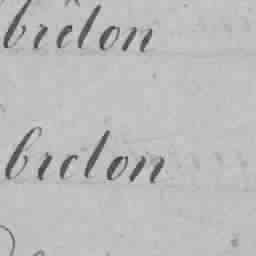 brêton
breton